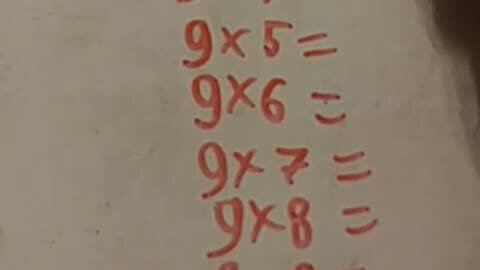 9×5=
9×6=
9×7=
9×8=